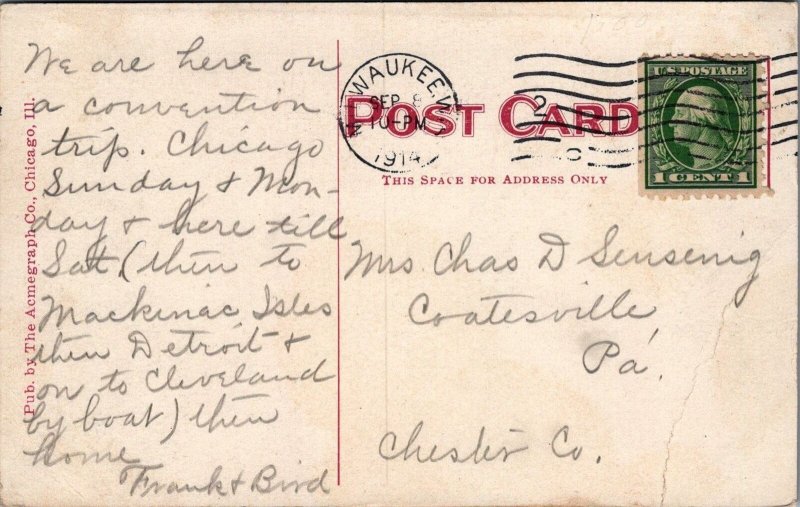 We are here on
a convention
trip. Chicago
Sunday & Mon-
day & here till
Sat (then to
Mackinac Isles
then Detroit &
on to Cleveland
by boat) then
home
Frank & Bird
Pub. by The Acmegraph Co., Chicago, Ill.
POST CARD
THIS SPACE FOR ADDRESS ONLY
MILWAUKEE, WIS
SEP 8
10-PM
1914
2
U.S. POSTAGE
1 CENT 1
Mrs Chas D Sensenig
Coatesville
Pa.
Chester Co.